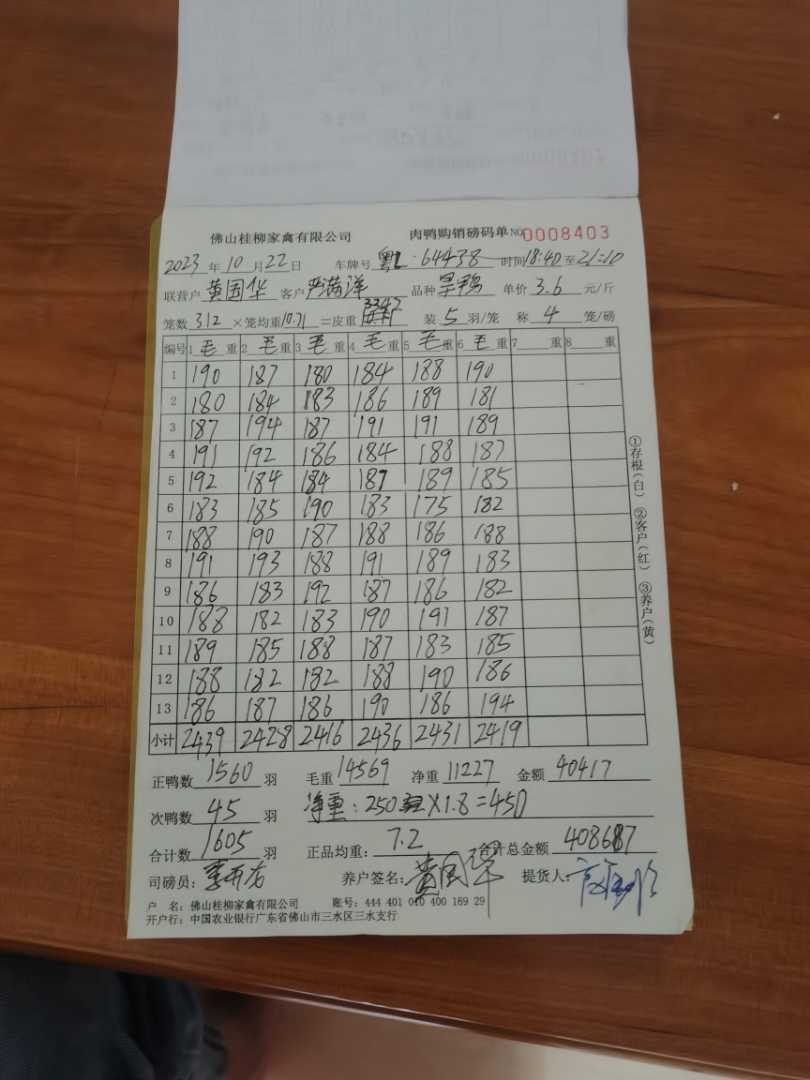 佛山桂柳家禽有限公司 肉鸭购销磅码单 NO 0008403
2023年10月22日 车牌号 粤L·64438 时间18:40至21:10
联营户 黄国华 客户 严满洋 品种 旱鸭 单价 3.6 元/斤
笼数 312 ×笼均重10.71 =皮重 3342 装 5 羽/笼 称 4 笼/磅
编号 1 毛 重 2 毛 重 3 毛 重 4 毛 重 5 毛 重 6 毛 重 7 重 8 重
1 190 187 180 184 188 190
2 180 184 183 186 189 181
3 187 194 187 191 191 189
4 191 192 186 184 188 187
5 192 184 184 187 189 185
6 183 185 190 183 175 182
7 188 190 187 188 186 188
8 191 193 188 191 189 183
9 186 183 192 187 186 182
10 188 182 183 190 191 187
11 189 185 188 187 183 185
12 188 182 182 188 190 186
13 186 187 186 190 186 194
小计 2439 2428 2416 2436 2431 2419
正鸭数 1560 羽 毛重 14569 净重 11227 金额 40417
次鸭数 45 羽 净重:250 ×1.8=450
合计数 1605 羽 正品均重: 7.2 合计总金额
司磅员: 养户签名: 黄国华 提货人:
户 名: 佛山桂柳家禽有限公司 账号: 444 401 040 400 169 29
开户行: 中国农业银行广东省佛山市三水区三水支行
①存根(白) ②客户(红) ③养户(黄)